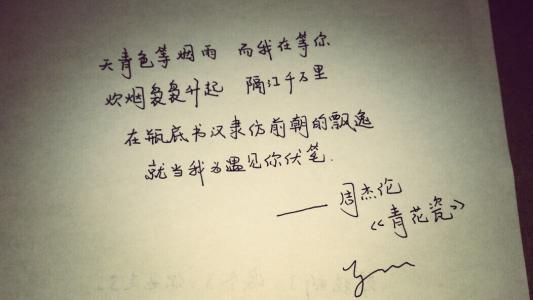 天青色等烟雨 而我在等你
炊烟袅袅升起 隔江千万里
在瓶底书汉隶仿前朝的飘逸
就当我为遇见你伏笔.
——周杰伦
《青花瓷》